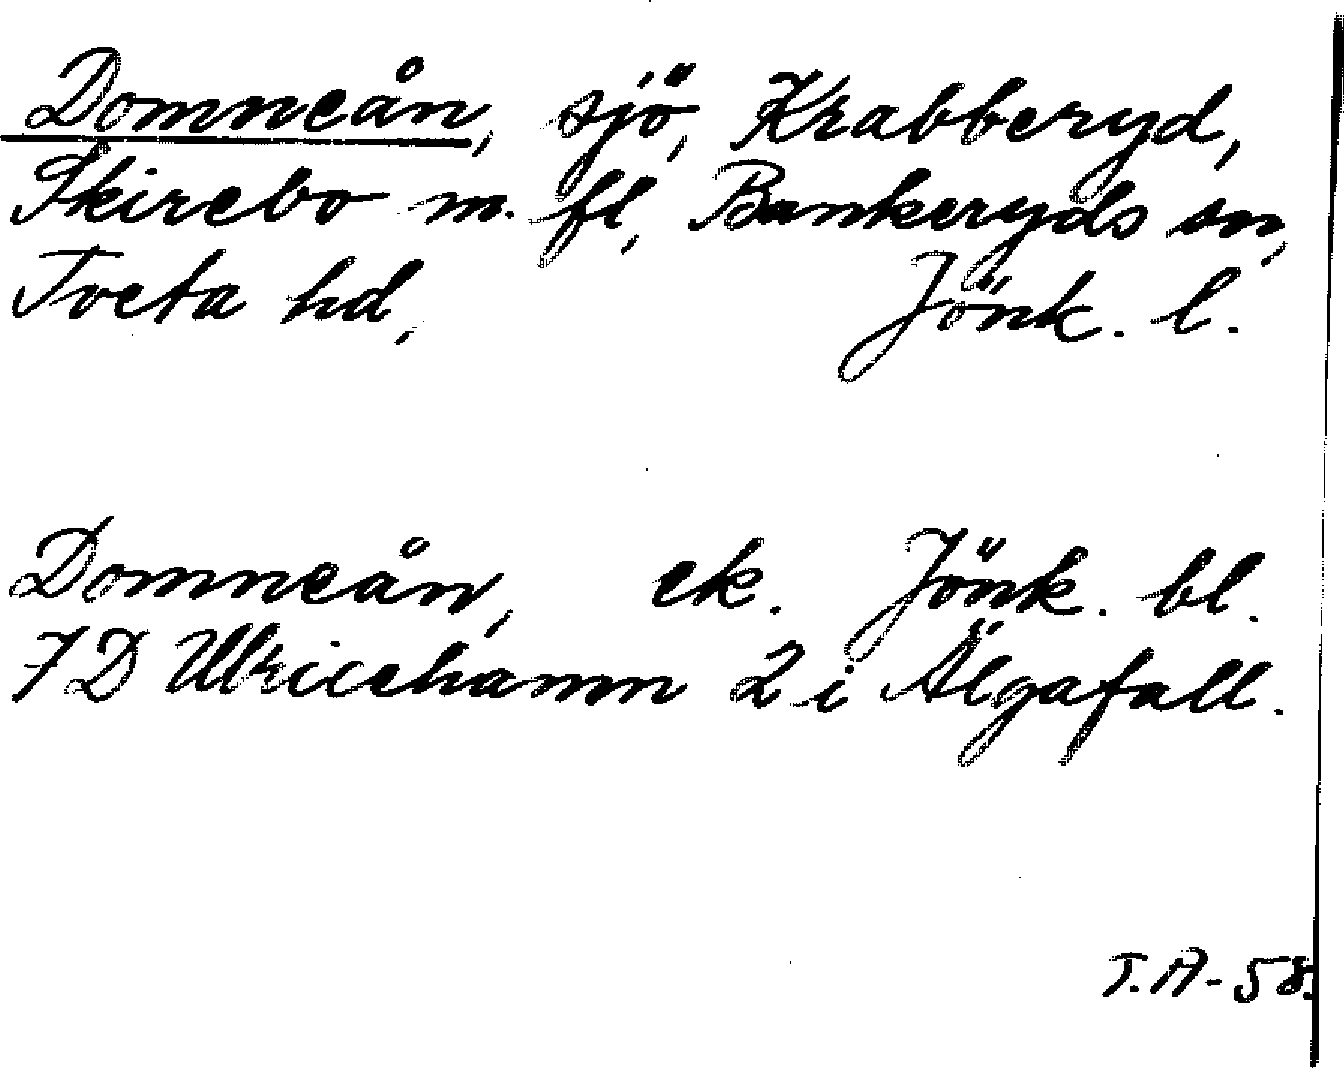 Domneån, sjö, Krabberyd,
Skirebo m. fl, Bankeryds sn,
Tveta hd, Jönk. l.
Domneån, ek. Jönk. bl.
7D Ulricehamn 2 i Älgafall.
T.A-58.